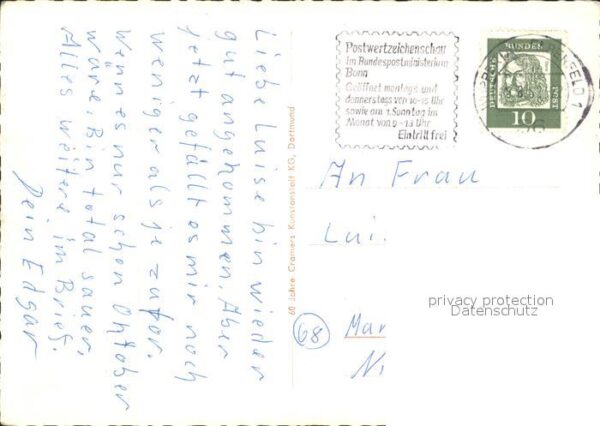 Liebe Luise bin wieder
gut angekommen. Aber
jetzt gefällt es mir noch
weniger als je zuvor.
Wenn es nur schon Oktober
wäre. Bin total sauer.
Alles weitere im Brief.
Dein Edgar
60 Jahre Cramers Kunstanstalt KG, Dortmund
Postwertzeichenschau
im Bundespostministerium
Bonn
Geöffnet montags und
donnerstags von 10-15 Uhr
sowie am 1. Sonntag im
Monat von 9-13 Uhr
Eintritt frei
DEUTSCHE BUNDESPOST
10
An Frau
Lui.
68 Mar
privacy protection
Datenschutz